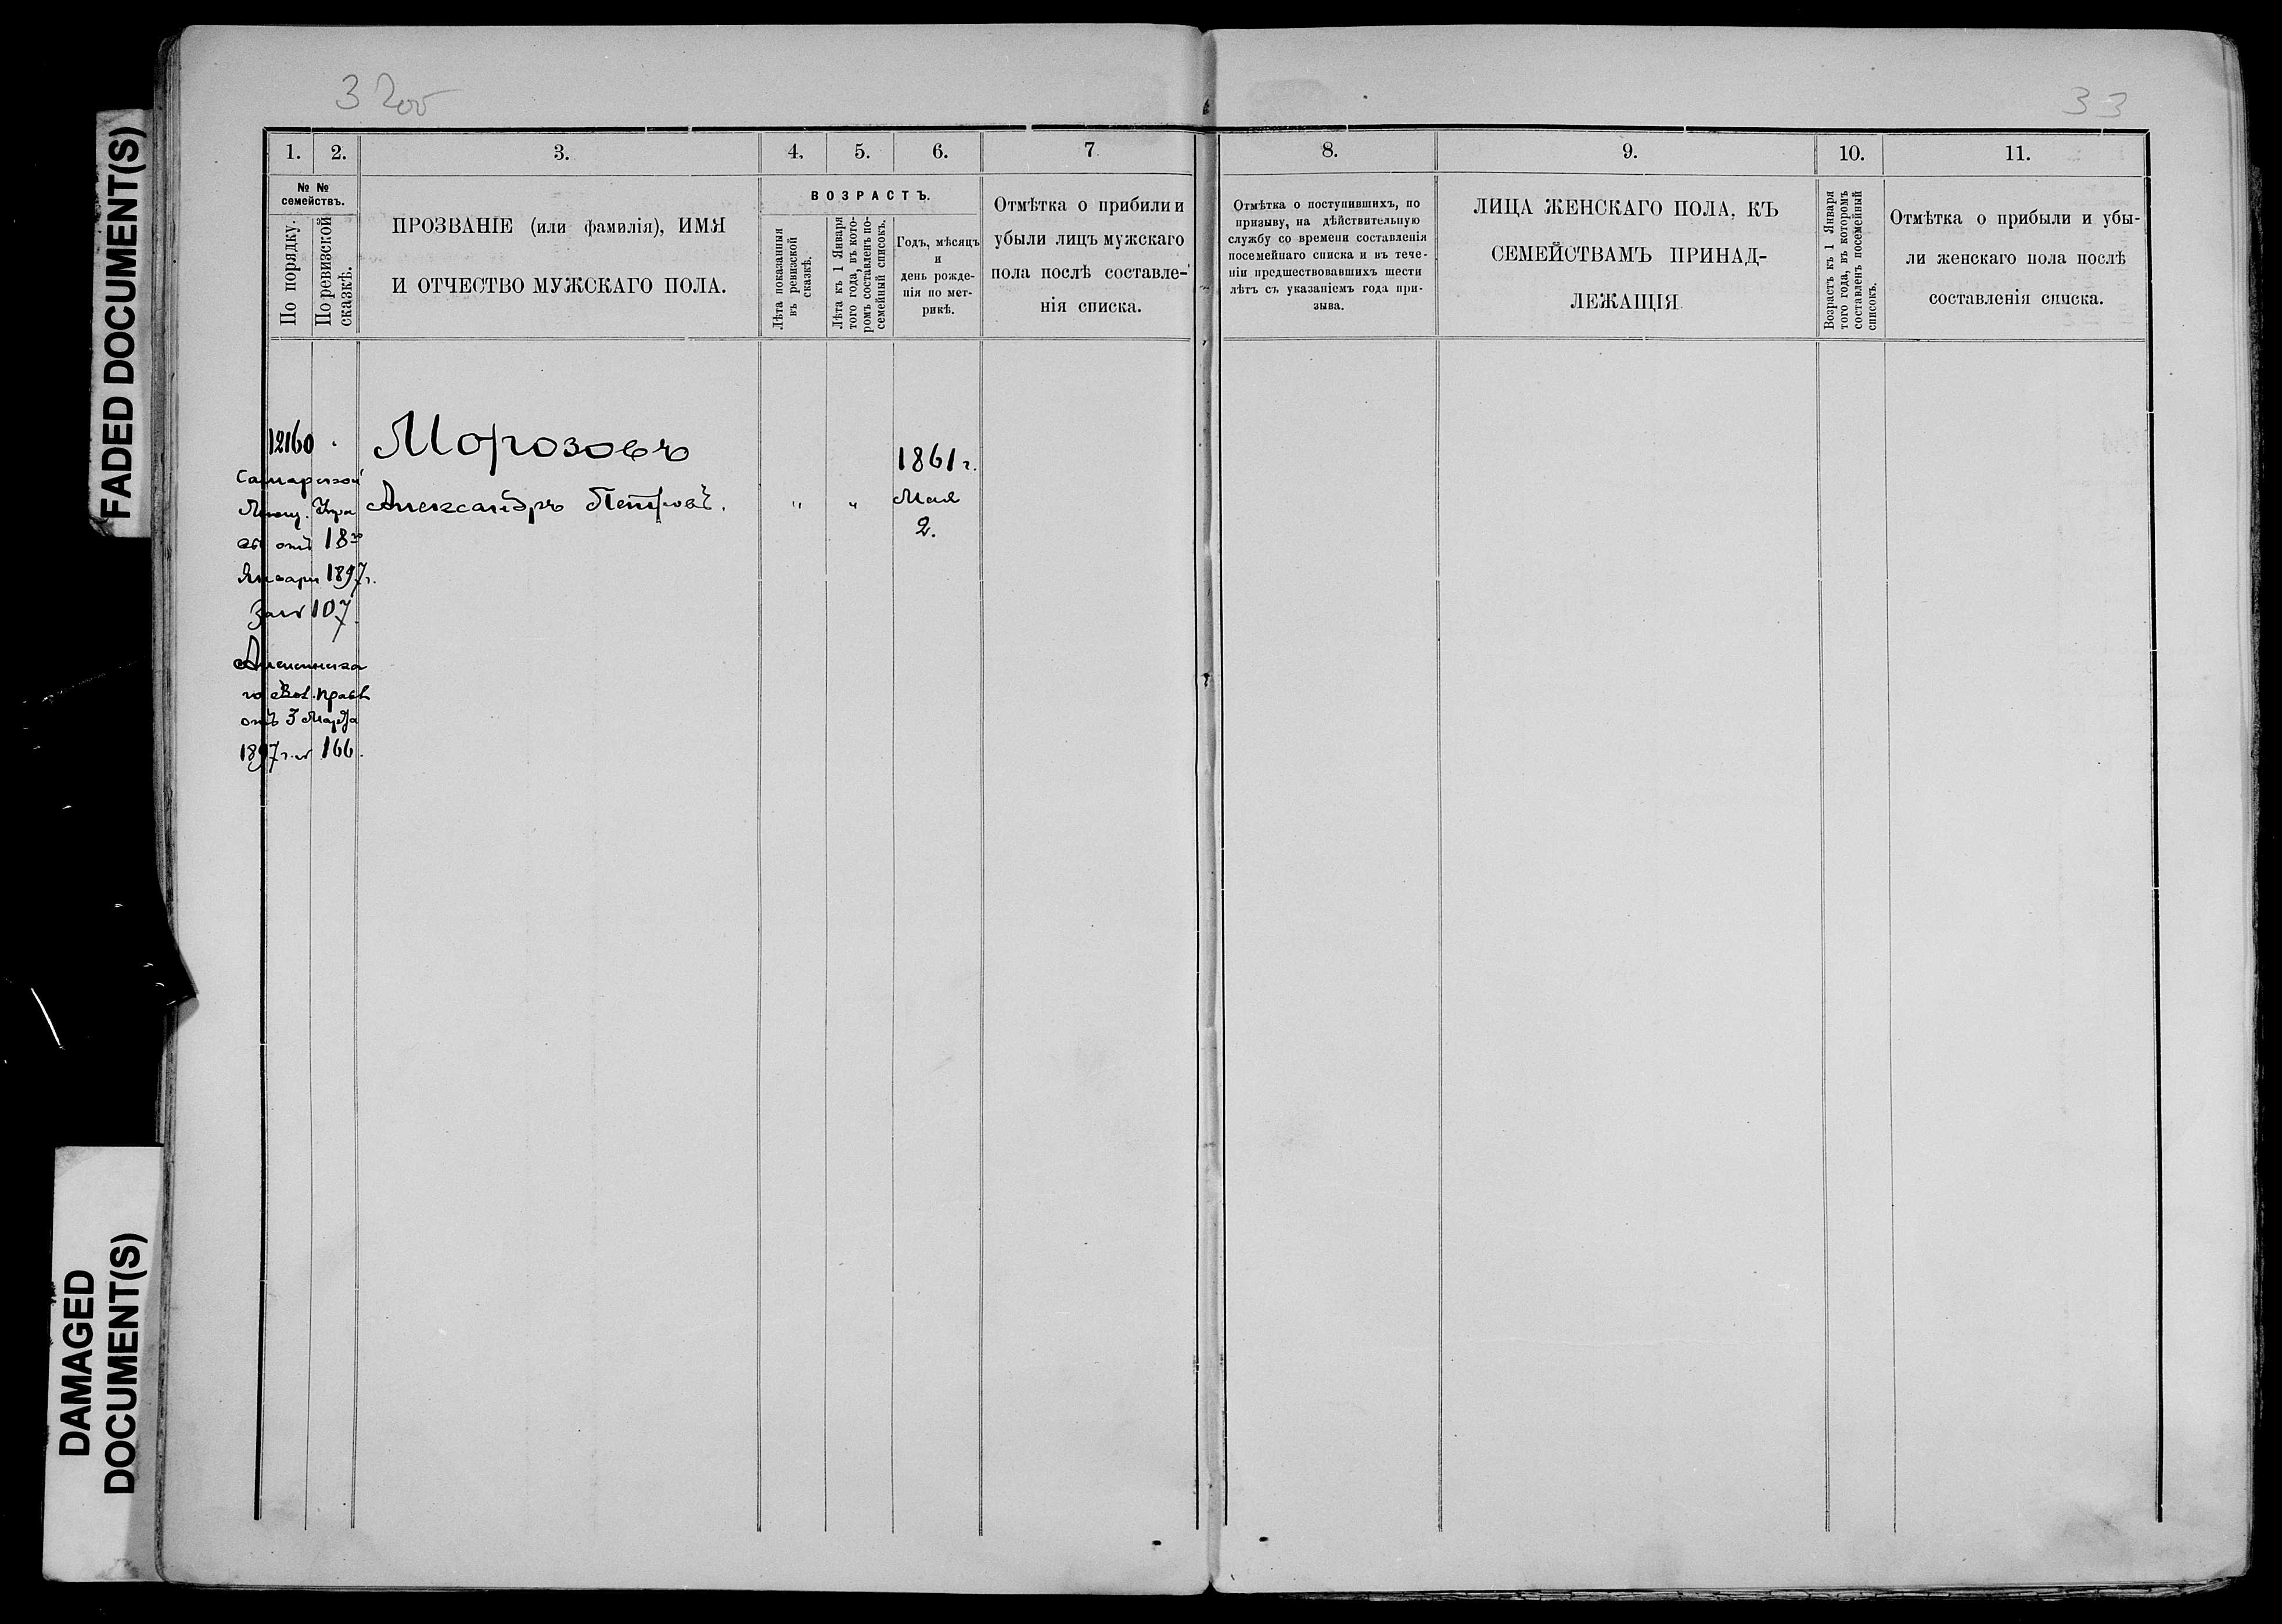 FADED DOCUMENT(S)
DAMAGED
DOCUMENT(S)
32об
33
1. 2. 3. 4. 5. 6. 7 8. 9. 10. 11.
№ №
семействъ.
По порядку.
По ревизской
сказкѣ.
ПРОЗВАНІЕ (или фамилія), ИМЯ
И ОТЧЕСТВО МУЖСКАГО ПОЛА.
ВОЗРАСТЪ.
Лѣта показанныя
въ ревизской
сказкѣ.
Лѣта къ 1 Января
того года, въ кото-
ромъ составленъ по-
семейный списокъ.
Годъ, мѣсяцъ
и
день рожде-
нія по мет-
рикѣ.
Отмѣтка о прибили и
убыли лицъ мужскаго
пола послѣ составле-
нія списка.
Отмѣтка о поступившихъ, по
призыву, на дѣйствительную
службу со времени составленія
посемейнаго списка и въ тече-
ніи предшествовавшихъ шести
лѣтъ съ указаніемъ года при-
зыва.
ЛИЦА ЖЕНСКАГО ПОЛА, КЪ
СЕМЕЙСТВАМЪ ПРИНАД-
ЛЕЖАЩІЯ
Возрастъ къ 1 Января
того года, въ которомъ
составленъ посемейный
списокъ.
Отмѣтка о прибыли и убы-
ли женскаго пола послѣ
составленія списка.
12160
Самарской
Мѣщ. Упра
вы отъ 18го
Января 1897 г.
за № 107.
го Вол. Правл
отъ 3 Марта
1897 г. № 166.
Морозовъ
Александръ Петровъ.
" "
1861 г.
Мая
2.